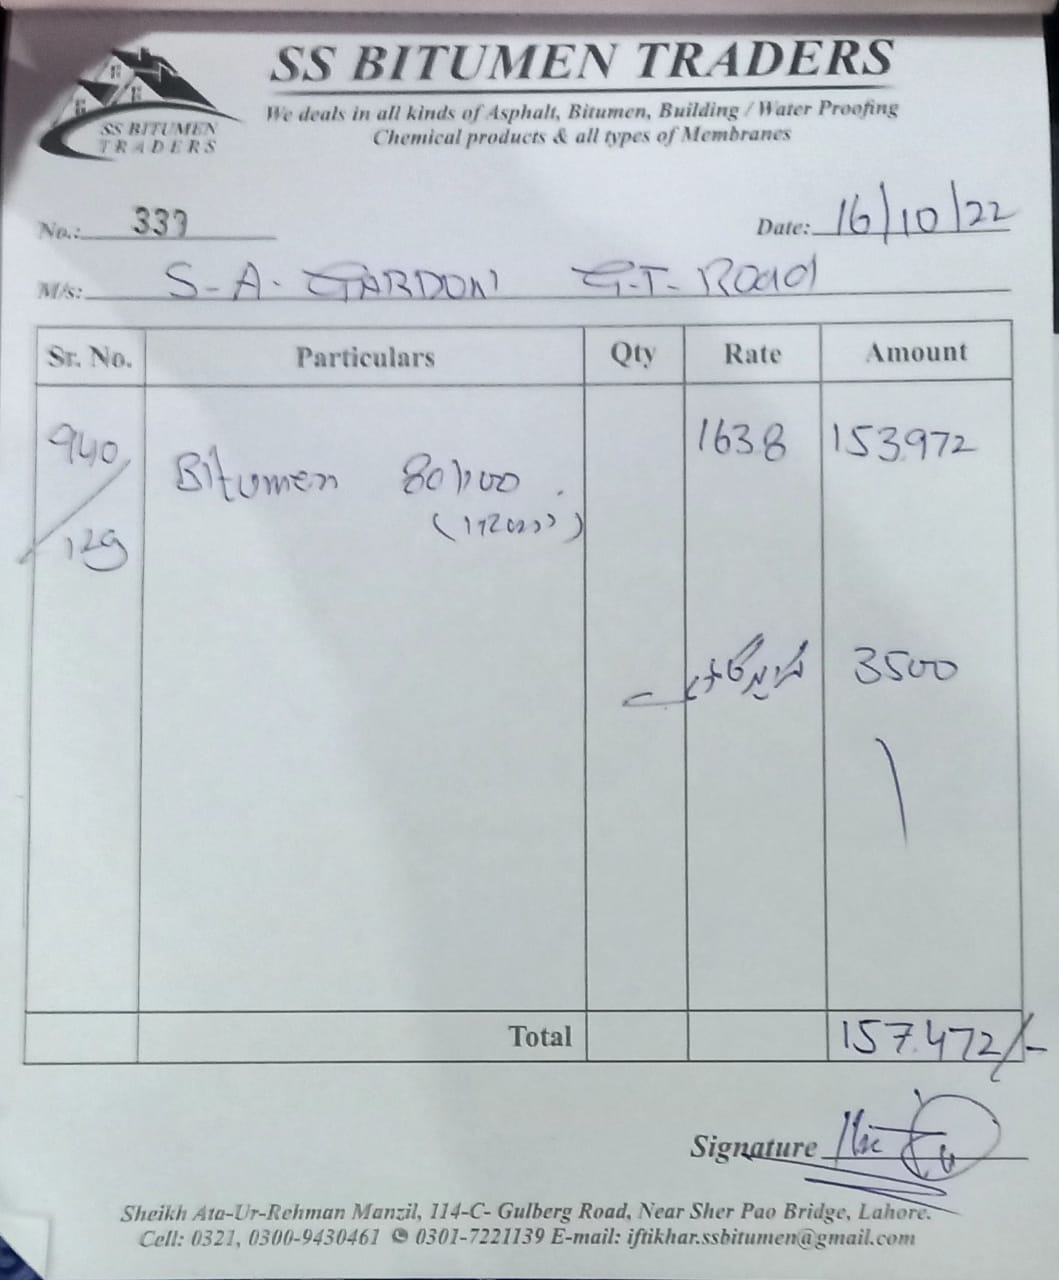 SS BITUMEN TRADERS
We deals in all kinds of Asphalt, Bitumen, Building / Water Proofing
Chemical products & all types of Membranes
SS BITUMEN
TRADERS
No.: 339 Date: 16/10/22
M/s: S-A- GARDON G.T- Road
Sr. No. Particulars Qty Rate Amount
940/129 Bitumen 80/100 1638 153972
3500
Total 157.472/-
Signature
Sheikh Ata-Ur-Rehman Manzil, 114-C- Gulberg Road, Near Sher Pao Bridge, Lahore.
Cell: 0321, 0300-9430461 0301-7221139 E-mail: iftikhar.ssbitumen@gmail.com